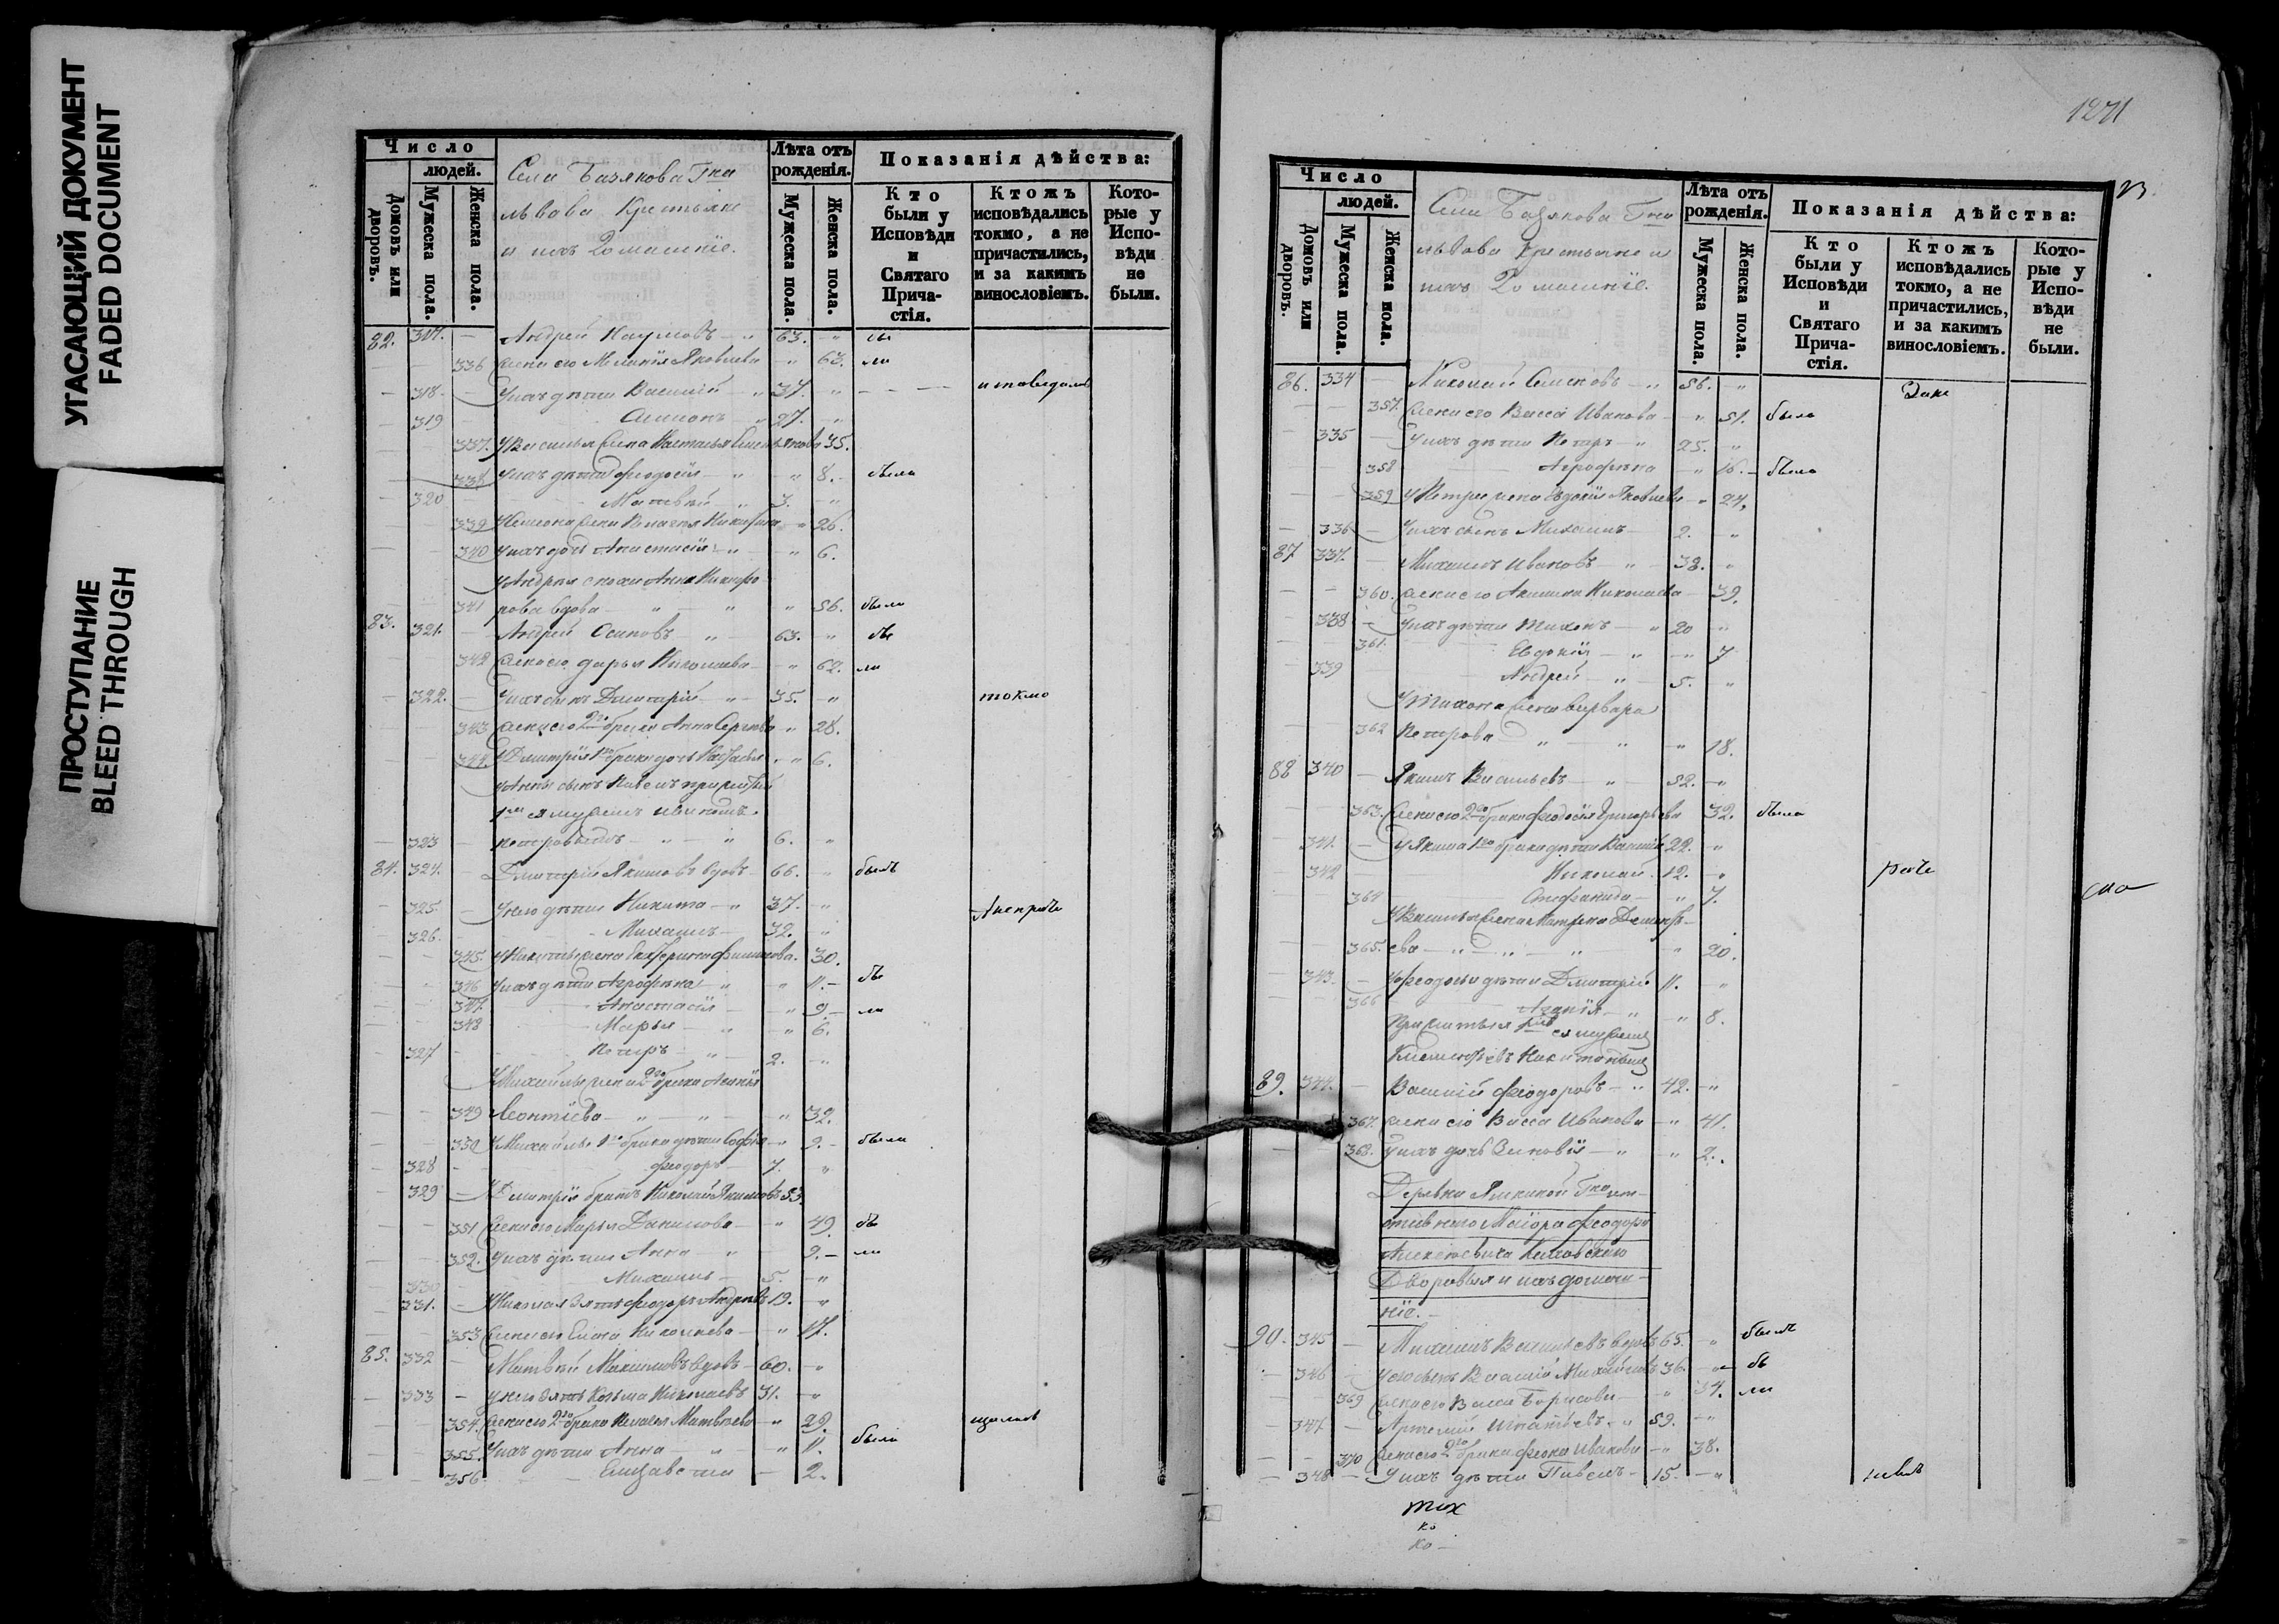 УГАСАЮЩИЙ ДОКУМЕНТ
FADED DOCUMENT
ПРОСТУПАНИЕ
BLEED THROUGH
Число
людей.
Домовъ или дворовъ.
Мужеска пола.
Женска пола.
Села Базякова Гна
Львова Крестьяне
и ихъ Домашніе.
Лѣта отъ рожденія.
Мужеска пола.
Женска пола.
Показанія дѣйства:
Кто были у Исповѣди и Святаго Прича-стія.
Ктожъ исповѣдались токмо, а не причастились, и за какимъ винословіемъ.
Кото-рые у Испо-вѣди не были.
82. 317. — Андрей Наумовъ — " 63. — " бы
336 Жена его Меланія Яковлева — " 63. ли
318. — У нихъ дѣти Василій — " 37. " исповедал
319 Симеонъ " 27. — "
337. У Василья жена Наталья 35.
338 У нихъ дѣти Феодосія — " — " 8. — была
320 Матвей " 3. — "
339 У Симеона жена 26.
340 У нихъ дочь Анастасія — " — " 6.
У Андрея сноха Анна Никифо
341 рова вдова — " — " " 56. была
83. 321. — Андрей Осиповъ — " 63. " бы
342 Жена его Дарья Николаева — " 62. ли
322. — У нихъ сынъ Дмитрій — " 35. — " токмо
343 Жена его 2го брака Анна Сергеева " 28.
344 У Дмитрія 1го брака дочь " 6.
У Анны сынъ Павелъ прижитый
1мъ ея мужемъ
323 — Петровымъ — " — " 6. "
84. 324. — Дмитрій Якимовъ вдовъ — 66. " былъ
325 — У него дѣти Никита — " 37. — "
326. Михаилъ — 32. — "
345. У Никиты жена Екатерина Филипова. 30.
346 У нихъ дѣти Агрофена " " 11. — бы
347. Анастасія — " 9. — ли
348 Марья — " " 6.
327 Петръ — " — 2. — "
У Михайлы жена 2го брака
349 Леонтіева — " — " — " 32.
350 У Михайлы 1го брака дѣти Софія — " 9. — была
328 Феодоръ — 7. "
329 — У Дмитрія братъ Николай Якимовъ 53.
351 Жена его Марья Данилова — " 49. бы
352. У нихъ дѣти Анна " 9. — ли
330 Михаилъ — 5. — "
331. — У Николая зять Феодоръ Андреевъ 19. "
353 Жена его Елена Николаева — " 17.
85. 332 — Матвей Михайловъ вдовъ — 60. — "
333 — У него зять Козьма Николаевъ 31. — "
354. Жена его 2го брака Матвеева — " 29.
355. У нихъ дѣти Анна — " — " 11. была
356 Елизавета — 2.
1271
Число
людей.
Домовъ или дворовъ.
Мужеска пола.
Женска пола.
Села Базякова Гна
Львова Крестьяне и
ихъ Домашніе.
Лѣта отъ рожденія.
Мужеска пола.
Женска пола.
Показанія дѣйства:
Кто были у Исповѣди и Святаго Прича-стія.
Ктожъ исповѣдались токмо, а не причастились, и за какимъ винословіемъ.
Кото-рые у Испо-вѣди не были.
86. 334 — Николай Семеновъ — " 56. — "
357. Жена его Васса Иванова — " 51. была
335 — У нихъ дѣти Петръ — " 25. "
358 Агрофена — " 16. — была
359 У Петра жена Евдокія Яковлева " 24.
336 — У нихъ сынъ Михаилъ — 2. "
87 337. — Михаилъ Ивановъ — " — 38. "
360. Жена его Акилина Николаева — 39.
338 — У нихъ дѣти Тихонъ — " 20 "
361. Евдокія — " — " 7
339 Андрей — " — 5. "
У Тихона жена Варвара
362 Петрова — " — " — " 18.
88 340 — Якимъ Васильевъ — " — 52. — "
363. Жена его 2го брака Феодосія Григорьева 32. была
341. — У Якима 1го брака дѣти Василій 22. — "
342 Николай 12. — "
364 Стефанида — " 7.
У Василья жена Матрена
365. ева — " — " — " " 20.
343. — У Феодосьи дѣти Дмитрій 11. — "
366 Агапія — " " 8.
Прижитыя 1мъ ея мужемъ
89. 344. — Василій Феодоровъ — " 42. — "
367. Жена его Васса Иванова — " 41.
368. У нихъ дочь Зиновія — " " 2.
Деревни Ямкиной Гна от-
ставнаго Маіора Феодора
Алексеевича
Дворовыя и ихъ домаш-
ніе. —
90. 345 — Михаилъ Васильевъ вдовъ 65. " былъ
346 — У него сынъ Василій Михайловъ 36. — " бы
369 Жена его Борисова — " 34. ли
347. — Артемій Игнатьевъ — " 59. — "
370 Жена его 2го брака Фекла Иванова — " 38.
348 — У нихъ дѣти Павелъ — 15. — "